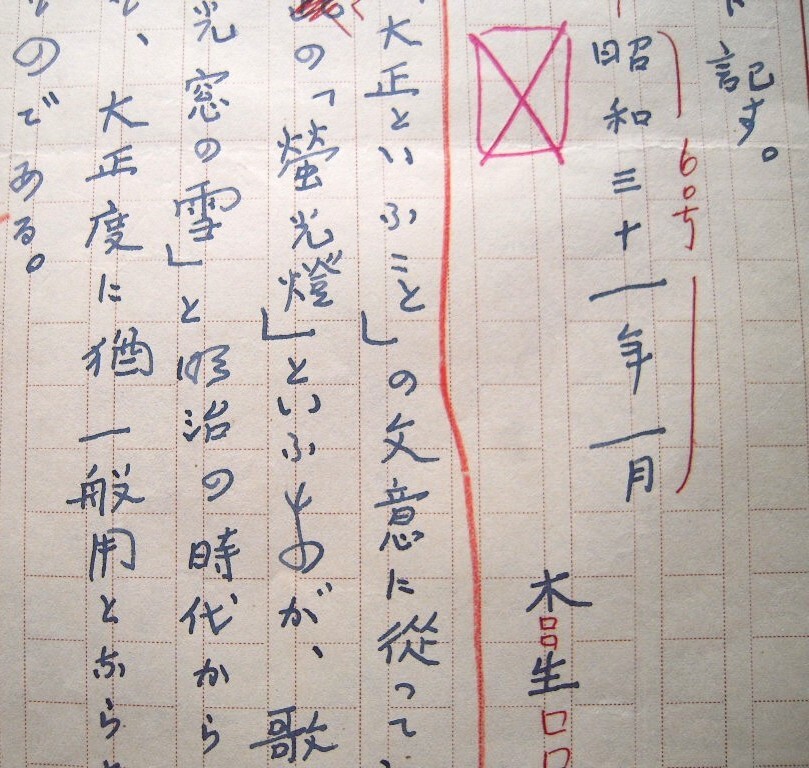 記す。
6ポ
昭和三十一年一月
木生
大正といふこと」の文意に從って
の「螢光燈」といふものが、歌
光窓の雪」と明治の時代から
、大正度に猶一般用となら
のである。